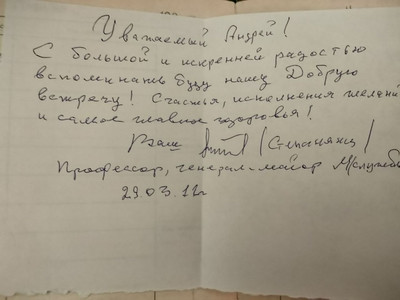 Уважаемый Андрей!
С большой и искренней радостью
вспоминать буду нашу Добрую
встречу! Счастья, исполнения желаний
и самое главное здоровья!
Ваш (Степанянц)
Профессор, генерал-майор М/службы
29.03.12г